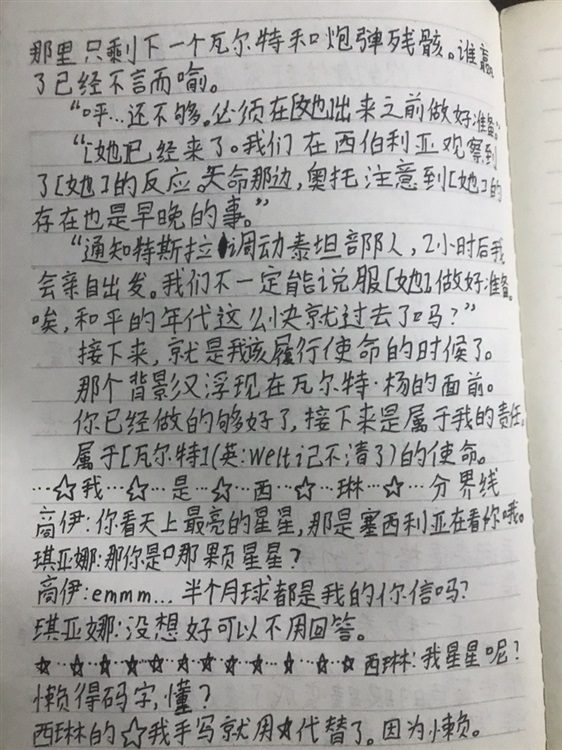 那里只剩下一个瓦尔特和炮弹残骸。谁赢
了已经不言而喻。
“呼…还不够。必须在[她]出来之前做好准备。”
“[她]已经来了。我们在西伯利亚观察到
了[她]的反应。天命那边，奥托注意到[她]的
存在也是早晚的事。”
“通知特斯拉调动泰坦部队人，2小时后我
会亲自出发。我们不一定能说服[她]。做好准备。
唉，和平的年代这么快就过去了吗？”
接下来，就是我该履行使命的时候了。
那个背影又浮现在瓦尔特·杨的面前。
你已经做的够好了，接下来是属于我的责任。
属于[瓦尔特](英:Welt记不清了)的使命。
…☆我…☆…是…☆…西…☆…琳…☆…分界线
高伊:你看天上最亮的星星，那是塞西利亚在看你哦。
琪亚娜:那你是哪颗星星？
高伊:emmm…半个月球都是我的你信吗？
琪亚娜:没想好可以不用回答。
☆…☆…☆…☆…☆…☆…☆…☆…☆…☆…☆ 西琳:我星星呢？
懒得码字，懂？
西琳的☆我手写就用☆代替了。因为懒。